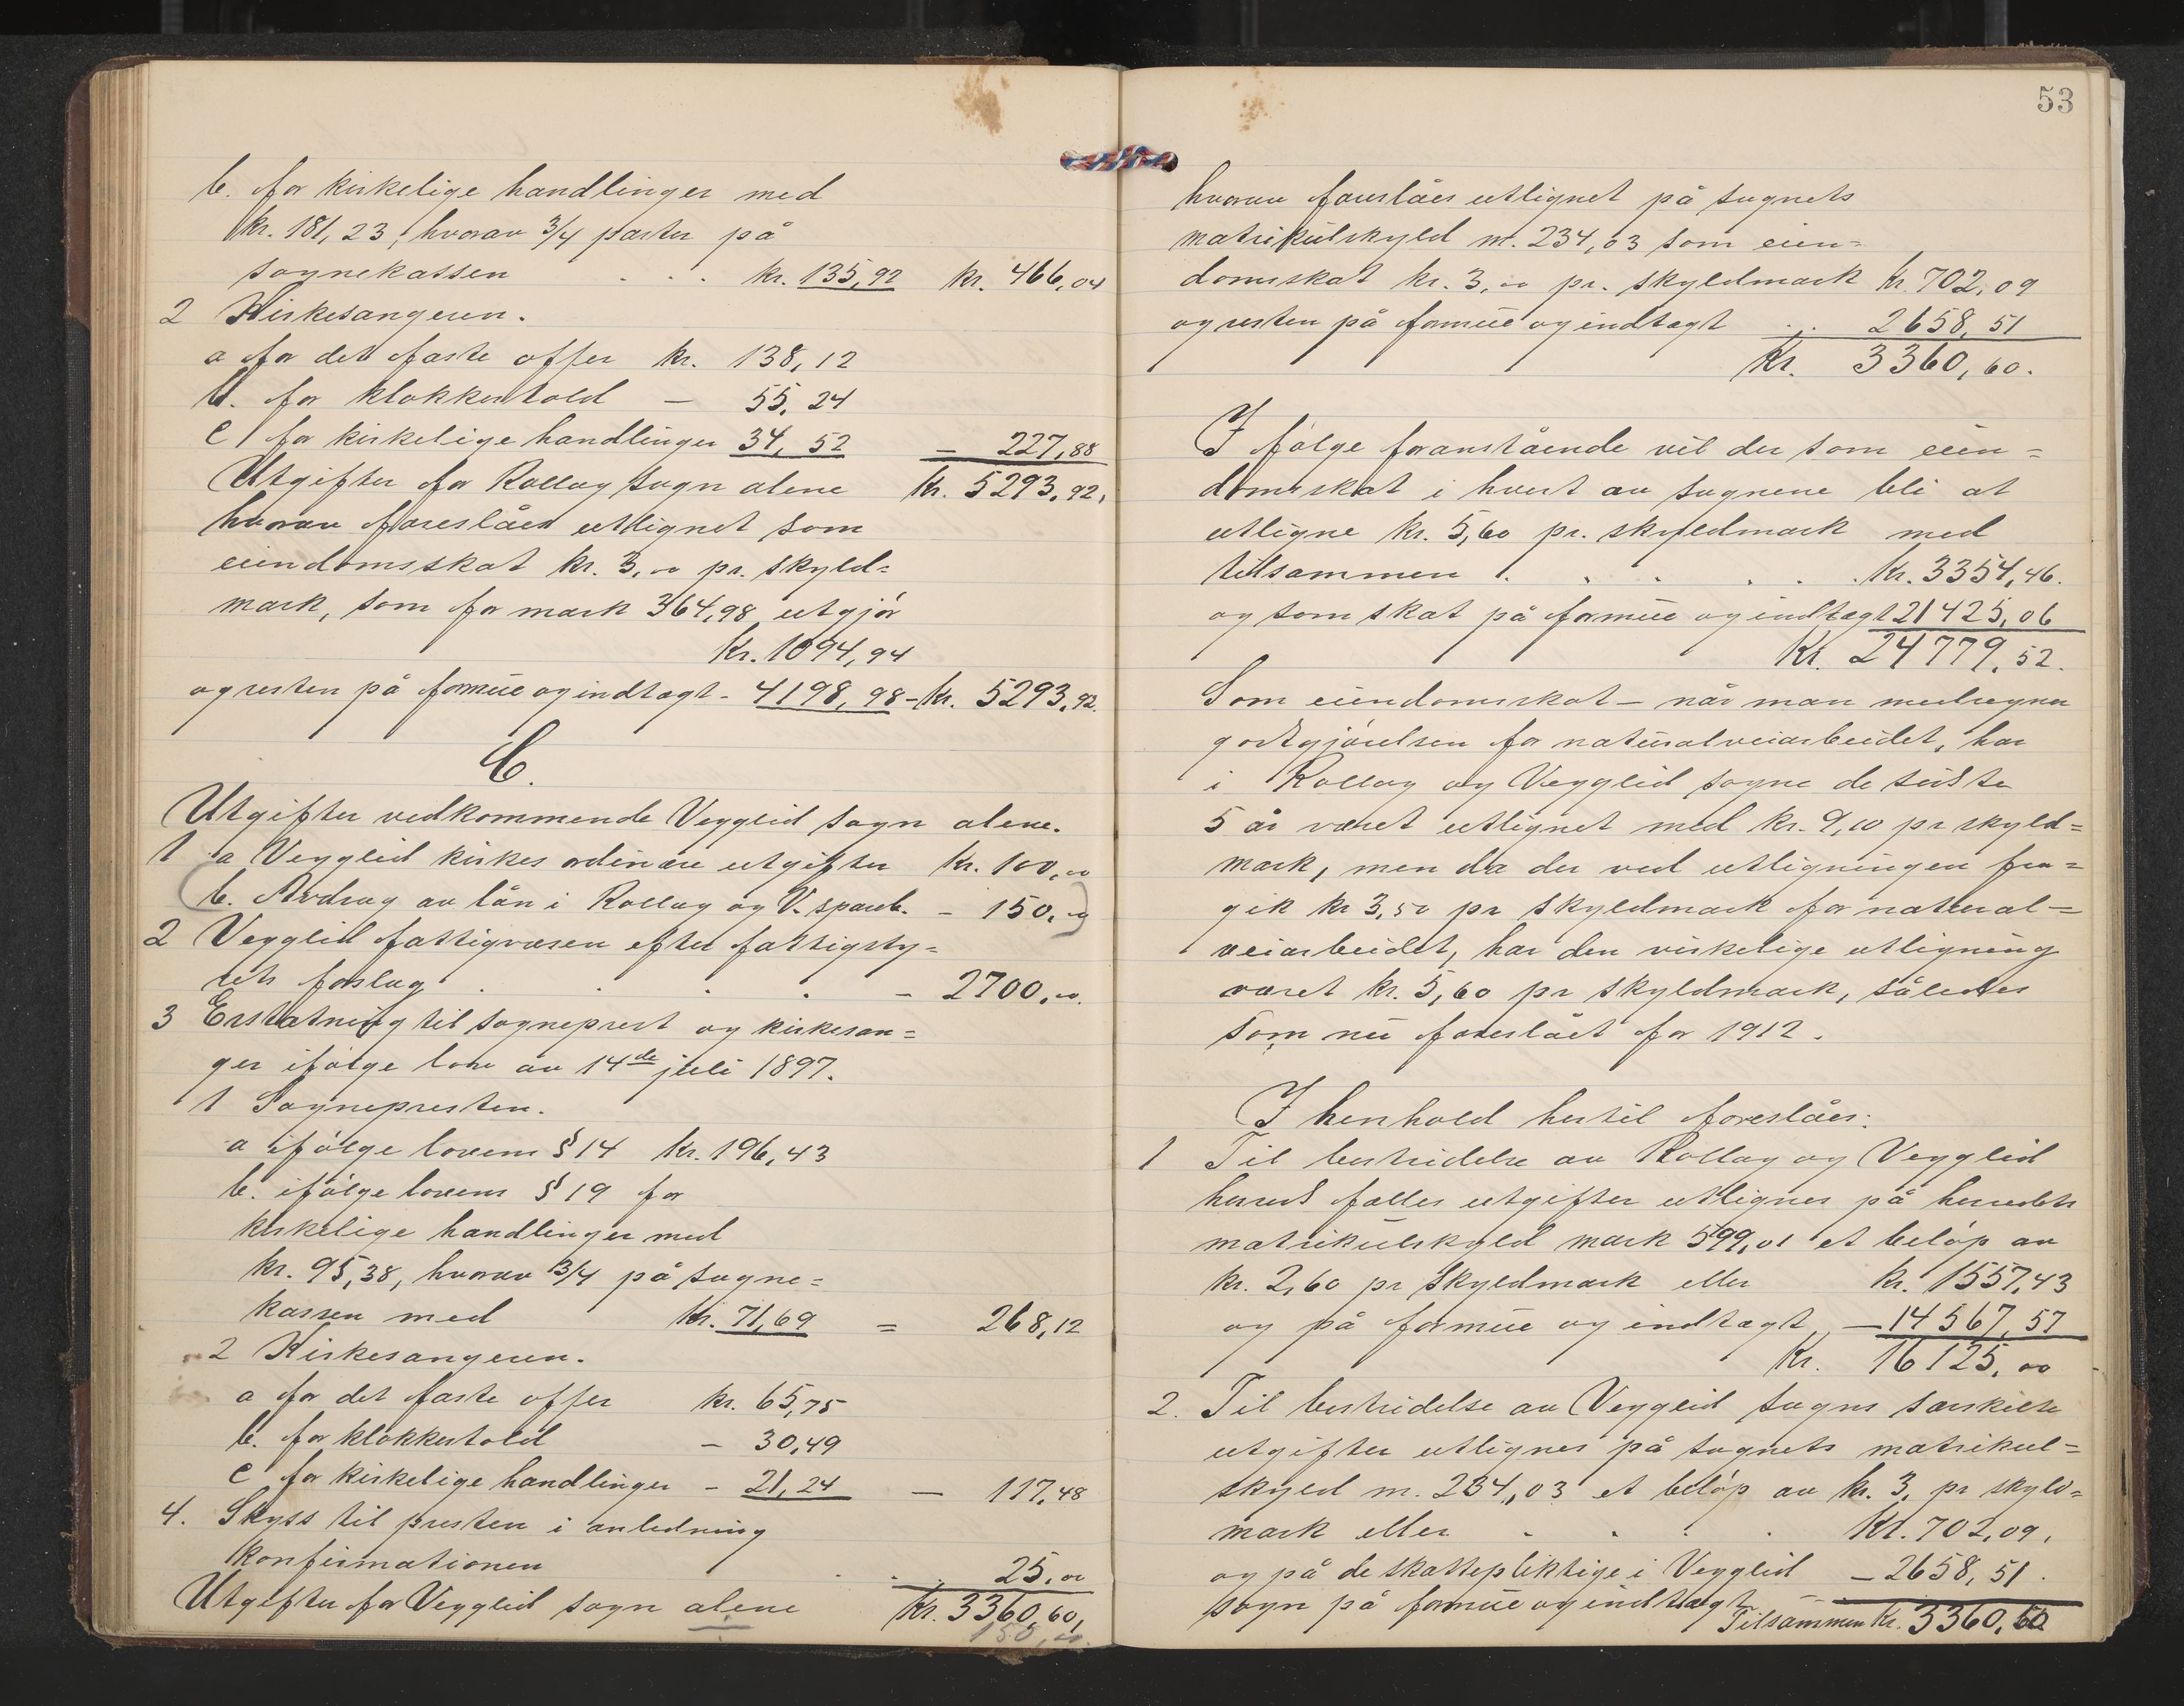 b. for kirkelige handlinger med
kr. 181,23, hvorav 3/4 parter på
sognekassen . . . kr. 135,92 kr. 466,04
2 Kirkesangeren.
a for det faste offer kr. 138,12
b. for klokkertold — 55,24
c for kirkelige handlinger 34,52 — 227,88
Utgifter for Rollag sogn alene kr. 5293,92,
hvorav foreslåes utlignet som
eiendomsskat kr. 3,00 pr. skyld=
mark, som for mark 364,98 utgjør
kr. 1094,94
og resten på formue og indtægt - 4198,98 - kr. 5293,92.
C.
Utgifter vedkommende Vegglid sogn alene.
1 a Vegglid kirkes ordinære utgifter kr. 100,00
(b. Avdrag av lån i Rollag og V. spareb. - 150,00)
2 Vegglid fattigvæsen efter fattigsty=
rets forslag . . . - 2700,00.
3 Erstatning til sogneprest og kirkesan=
ger ifølge lov av 14de juli 1897.
1 Sognepresten.
a ifølge lovens § 14 kr. 196,43
b. ifølge lovens § 19 for
kirkelige handlinger med
kr. 95,38, hvorav 3/4 på sogne=
kassen med kr. 71,69 = 268,12
2 Kirkesangeren.
a for det faste offer kr. 65,75
b. for klokkertold - 30,49
c for kirkelige handlinger - 21,24 — 117,48
4. Skyss til presten i anledning
konfirmationen . . . 25,00
Utgifter for Vegglid sogn alene kr. 3360,60,
150,00.
53
hvorav foreslåes utlignet på sognets
matrikulskyld m. 234,03 som eien=
domsskat kr. 3,00 pr. skyldmark kr. 702,09
og resten på formue og indtægt . . . 2658,51
Kr. 3360,60.
I følge foranstående vil der som eien=
domsskat i hvert av sognene bli at
utligne kr. 5,60 pr. skyldmark med
tilsammen . . . . . . kr. 3354,46.
og som skat på formue og indtægt 21425,06
Kr. 24779,52.
Som eiendomsskat — når man medregner
godtgjørelsen for naturalveiarbeidet, har
i Rollag og Vegglid sogne de siste
5 år været utlignet med kr. 9,10 pr skyld=
mark, men da der ved utligningen fra=
gik kr 3,50 pr skyldmark for natural=
veiarbeidet, har den virkelige utligning
været kr. 5,60 pr skyldmark, således
som nu foreslået for 1912.
I henhold hertil foreslåes:
1 Til bestridelse av Rollag og Vegglid
herreds fælles utgifter utlignes på herredets
matrikulskyld mark 599,01 et beløp av
kr. 2,60 pr skyldmark eller kr. 1557,43
og på formue og indtægt — 14567,57
Kr. 16125,00
2. Til bestridelse av Vegglid sogns særskilte
utgifter utlignes på sognets matrikul=
skyld m. 234,03 et beløp av kr. 3, pr skyld=
mark eller . . . . Kr. 702,09,
og på de skattepliktige i Vegglid — 2658,51.
sogn på formue og indtægt
Tilsammen kr. 3360,60